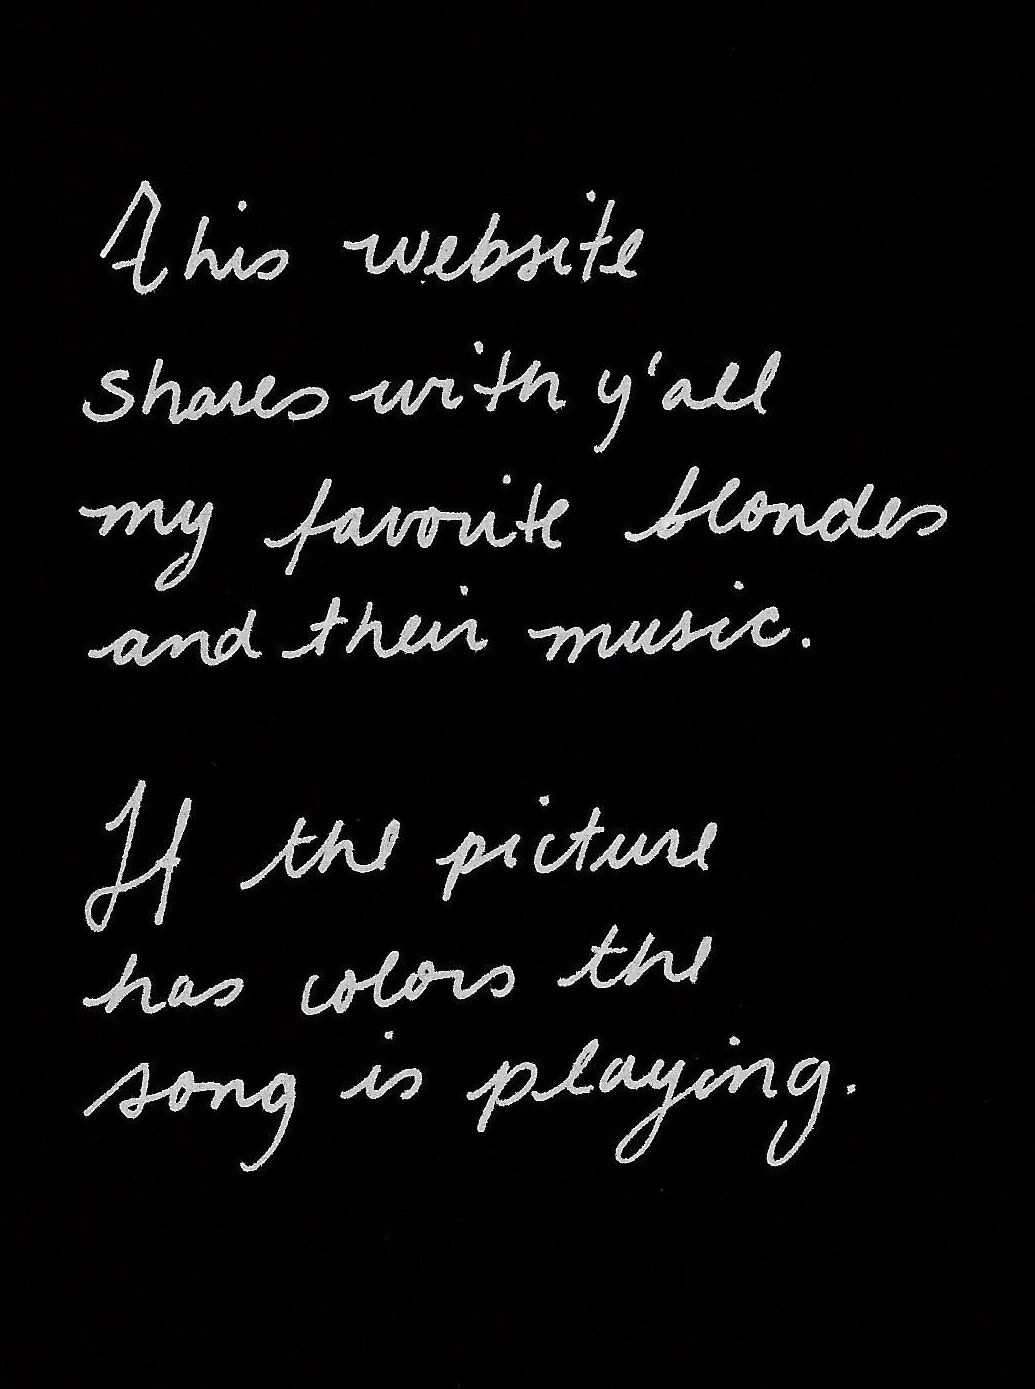 This website
shares with y'all
my favorite blondes
and their music.
If the picture
has colors the
song is playing.